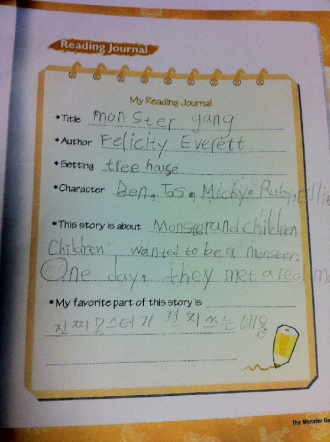 Reading Journal
My Reading Journal
• Title monster gang
• Author Felicity Everett
• Setting tree house
• Character Ben, Tas, Micky, Ruby, Ellie
• This story is about Monster and children
Children wanted to be a monster.
One day, they met a real mo
• My favorite part of this story is
진짜 몬스터가 편지쓰는 내용
The Monster Ga